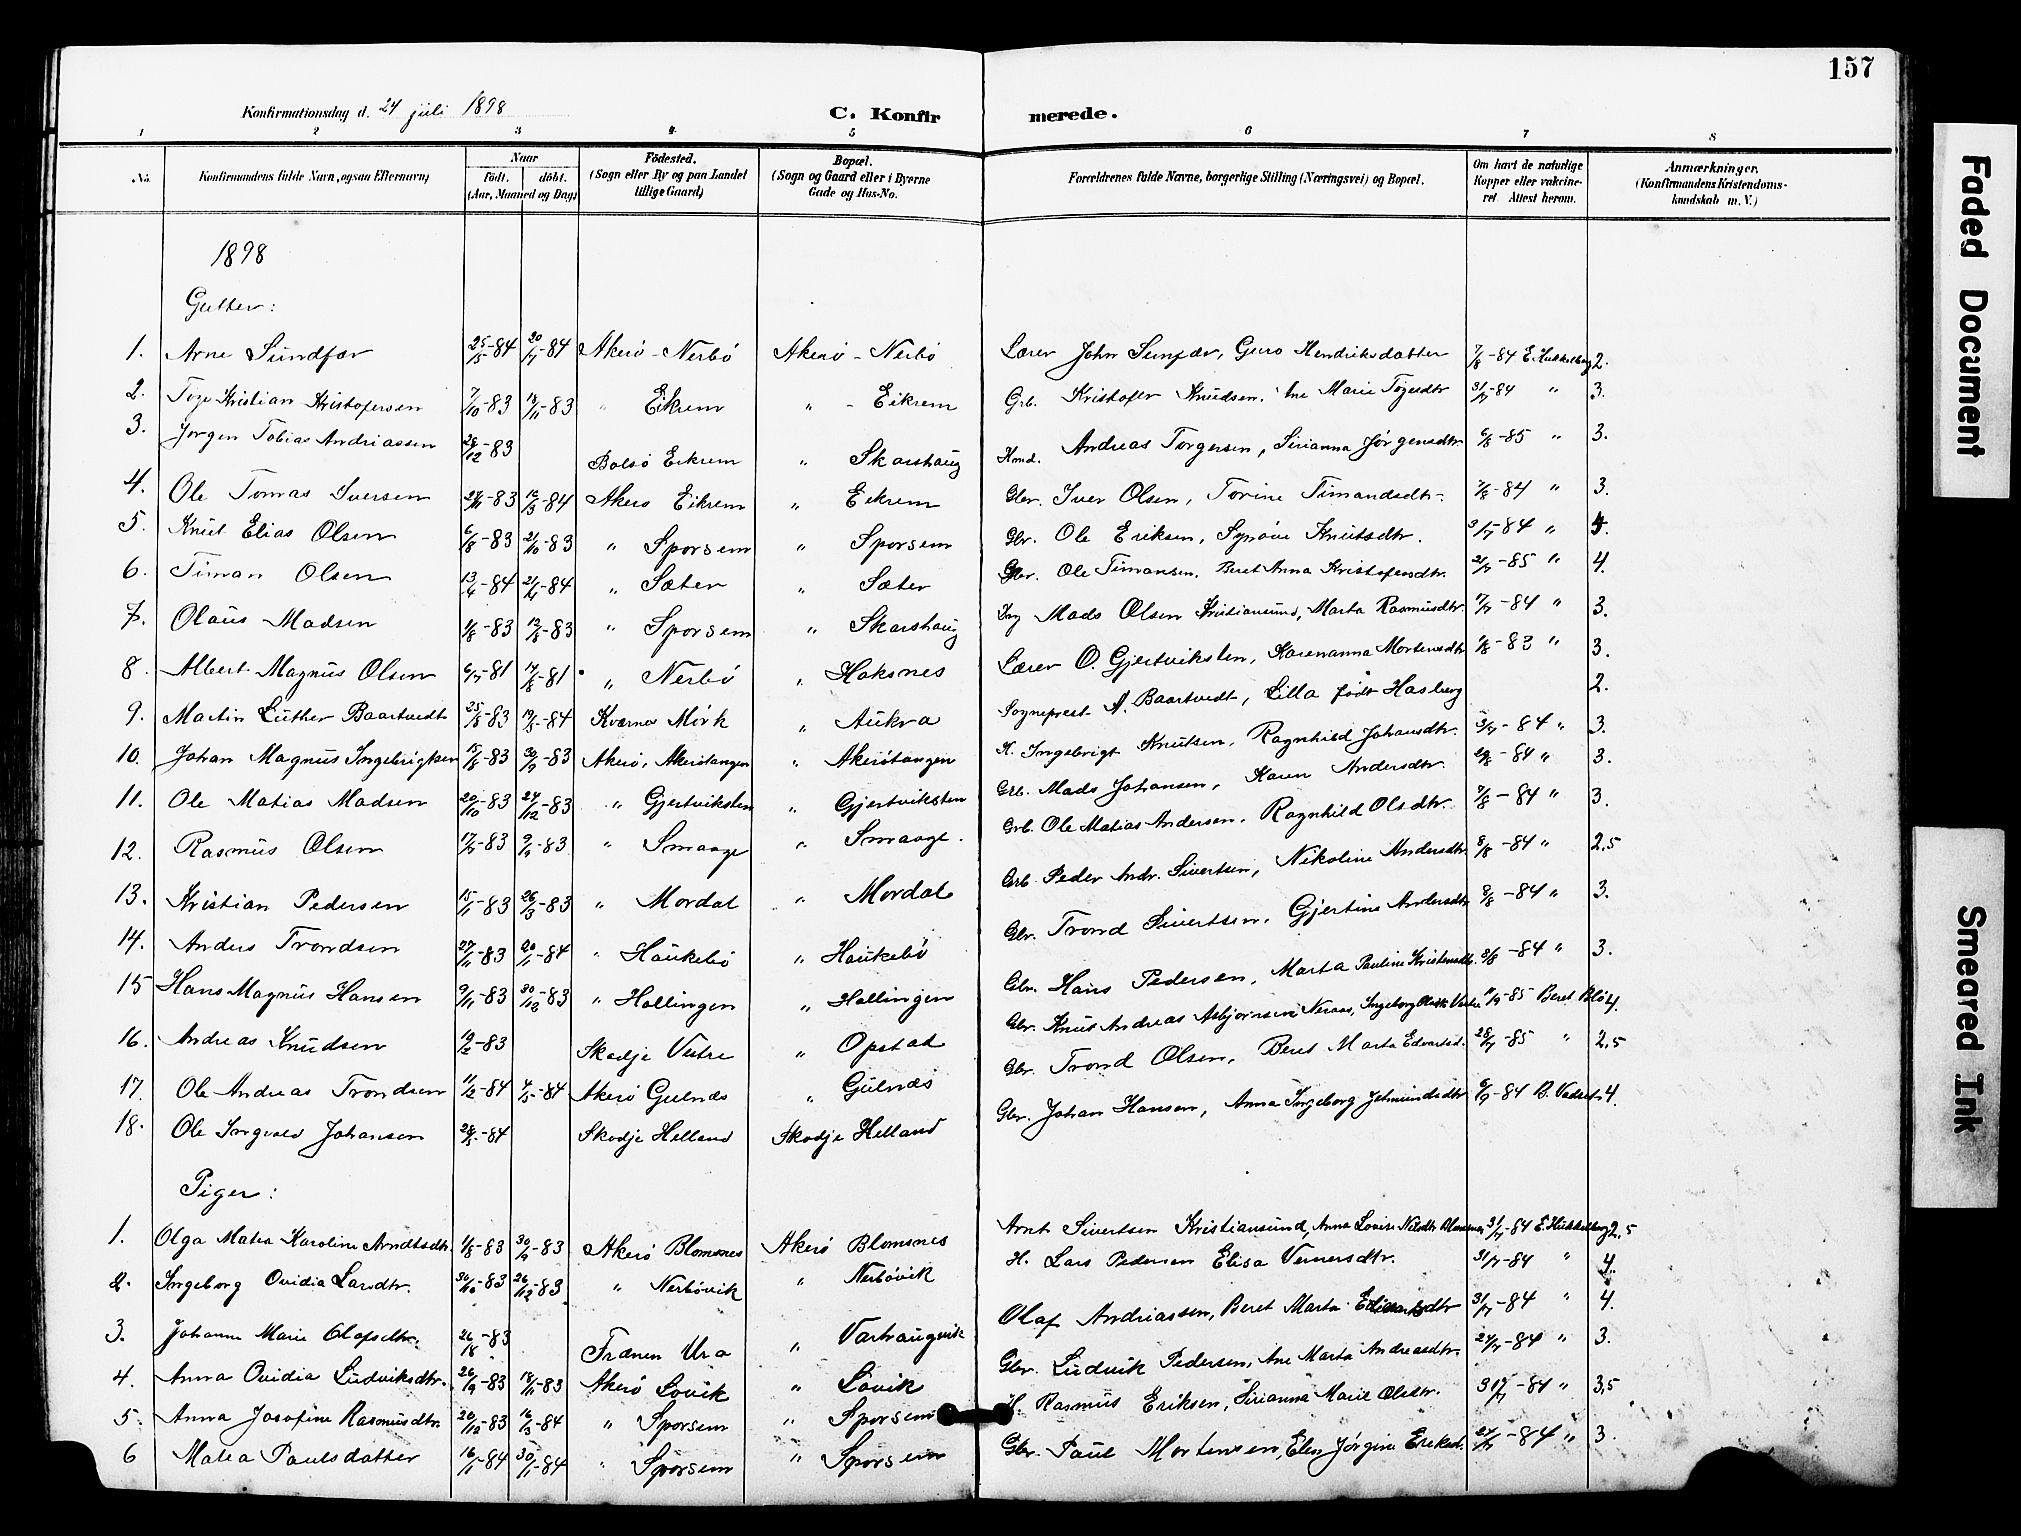 157
Konfirmationsdag d. 24 juli 1898
C. Konfirmerede.
1 2 3 4 5 6 7 8
No. Konfirmandens fulde Navn, ogsaa Efternavn) Naar Födt. döbt. (Aar, Maaned og Dag) Födested. (Sogn eller By og paa Landet tillige Gaard) Bopæl. (Sogn og Gaard eller i Byerne Gade og Hus-No. Forældrenes fulde Navne, borgerlige Stilling (Næringsvei) og Bopæl. Om havt de naturlige Kopper eller vakcineret. Attest herom. Anmærkninger. (Konfirmandens Kristendomskundskab m. V.)
1898
Gutter:
1. Arne Sundfær 25/5-84 20/7-84 Akerö - Nerbö Akerö - Nerbö Lærer John Sunfær, Guro Hendriksdatter 7/8-84 E. Hukkelberg 2.
2. Toge Kristian Kristofersen 7/10-83 18/11-83 " Eikrem " - Eikrem Grb. Kristofer Knudsen, Ane Marie Togesdtr 31/7-84 " 3.
3. Jörgen Tobias Andriassen 28/12-83 Bolsö Eikrem " Skarshaug Kmd. Andreas Torgersen, Sirianna Jörgensdtr. 6/8-85 " 3.
4. Ole Tomas Iversen 27/11-83 16/3-84 Akerö Eikrem " Eikrem Gbr. Iver Olsen, Torine Timandsdtr- 7/8-84 " 3.
5. Knut Elias Olsen 6/8-83 21/10-83 " Sporsem " Sporsem Gbr. Ole Eriksen, Synöve Knutsdtr. 31/7-84 "
6. Timan Olsen 13/4-84 21/4-84 " Sæter " Sæter Gbr. Ole Timansen, Beret Anna Kristofersdtr. 21/7-85 " 4.
7. Olaus Madsen 1/8-83 12/8-83 " Sporsem " Skarshaug Mads Olsen Kristiansund, Marta Rasmusdtr. 17/7-84 " 3.
8. Albert Magnus Olsen 6/7-81 17/8-81 " Nerbö " Hoksnes Lærer O. Gjertviksten, Karenanna Mortensdtr 1/8-83 " 3.
9. Martin Luther Baartvedt 25/8-83 Kværnes Mörk " Aukra Sogneprest A. Baartvedt, Lilla födt Hasberg 2.
10. Johan Magnus Ingebrigtsen 15/8-83 30/9-83 Akerö, Akerötangen " Akerötangen H. Ingebrigt Knutsen, Ragnhild Johansdtr. 3/7-84 " 3.
11. Ole Matias Madsen 20/10-83 27/12-83 " Gjertviksten " Gjertviksten Grb. Mads Johansen, Karen Andersdtr. 20/8-84 " 3.
12. Rasmus Olsen 17/7-83 9/9-83 " Smaage " Smaage. Grb. Ole Matias Andersen, Ragnhild Olsdtr. 7/8-84 " 3.
13. Kristian Pedersen 15/1-83 26/3-83 " Mordal " Mordal Grb. Peder Andr. Sivertsen, Nikoline Andersdtr 8/8-84 " 2,5
14. Anders Trondsen 27/11-83 20/1-84 " Haukebö " Haukebö Gbr. Trond Sivertsen, Gjertine Andersdtr 8/8-84 " 3.
15 Hans Magnus Hansen 9/11-83 30/12-83 " Hollingen " Hollingen Gbr. Hans Pedersen, Marta Pauline Kristensdtr. 8/8-84 " 3.
16. Andreas Knudsen 19/2-83 Skodje Vestre " Opstad Gbr. Knut Andreas Asbjörnsen Neraas, Ingeborg 11/9-85 Beret Blö 4.
17. Ole Andreas Trondsen 11/2-84 4/5-84 Akerö Gulnæs " Gulnæs Gbr. Trond Olsen, Beret Marta Edvartsd. 28/7-85 " 2,5
18. Ole Ingvald Johansen 28/5-84 Skodje Helland Skodje Helland Gbr. Johan Hansen, Anna Ingeborg Jetmundsdtr 6/9-84 B. Vadset 4.
Piger:
1. Olga Matea Karoline Arndtsdtr. 1/8-83 30/9-83 Akerö Blomsnes Akerö Blomsnes Arnt Sivertsen Kristiansund, Anna Lovise Nilsdtr Blomsnes 31/7-84 E. Hukkelberg 2,5
2. Ingeborg Ovidia Larsdtr. 30/10-83 26/12-83 " Nerbövik " Nerbövik H. Lars Pedersen Elisa Vernersdtr. 31/7-84 " 4.
3. Johanne Marie Olafsdtr. 26/8-83 Frænen Ura " Varhaugvik Olaf Andriassen, Beret Marta Edvartsdtr 31/7-84 " 4.
4. Anna Ovidia Ludviksdtr. 26/9-83 18/11-83 Akerö Lövik " Lövik Gbr. Ludvik Pedersen, Ane Marta Andreasdtr. 24/7-84 " 3.
5. Anna Josofine Rasmusdtr. 20/12-83 16/3-84 " Sporsem " Sporsem H. Rasmus Eriksen, Sirianna Marie Olsdtr. -84 " 3,5
6 Matea Paulsdatter 16/1-84 30/1-84 " Sporsem " Sporsem Gbr. Paul Mortensen, Elen Jörgine Eriksd. 24/7-84 " 3.
Faded Document
Smeared Ink